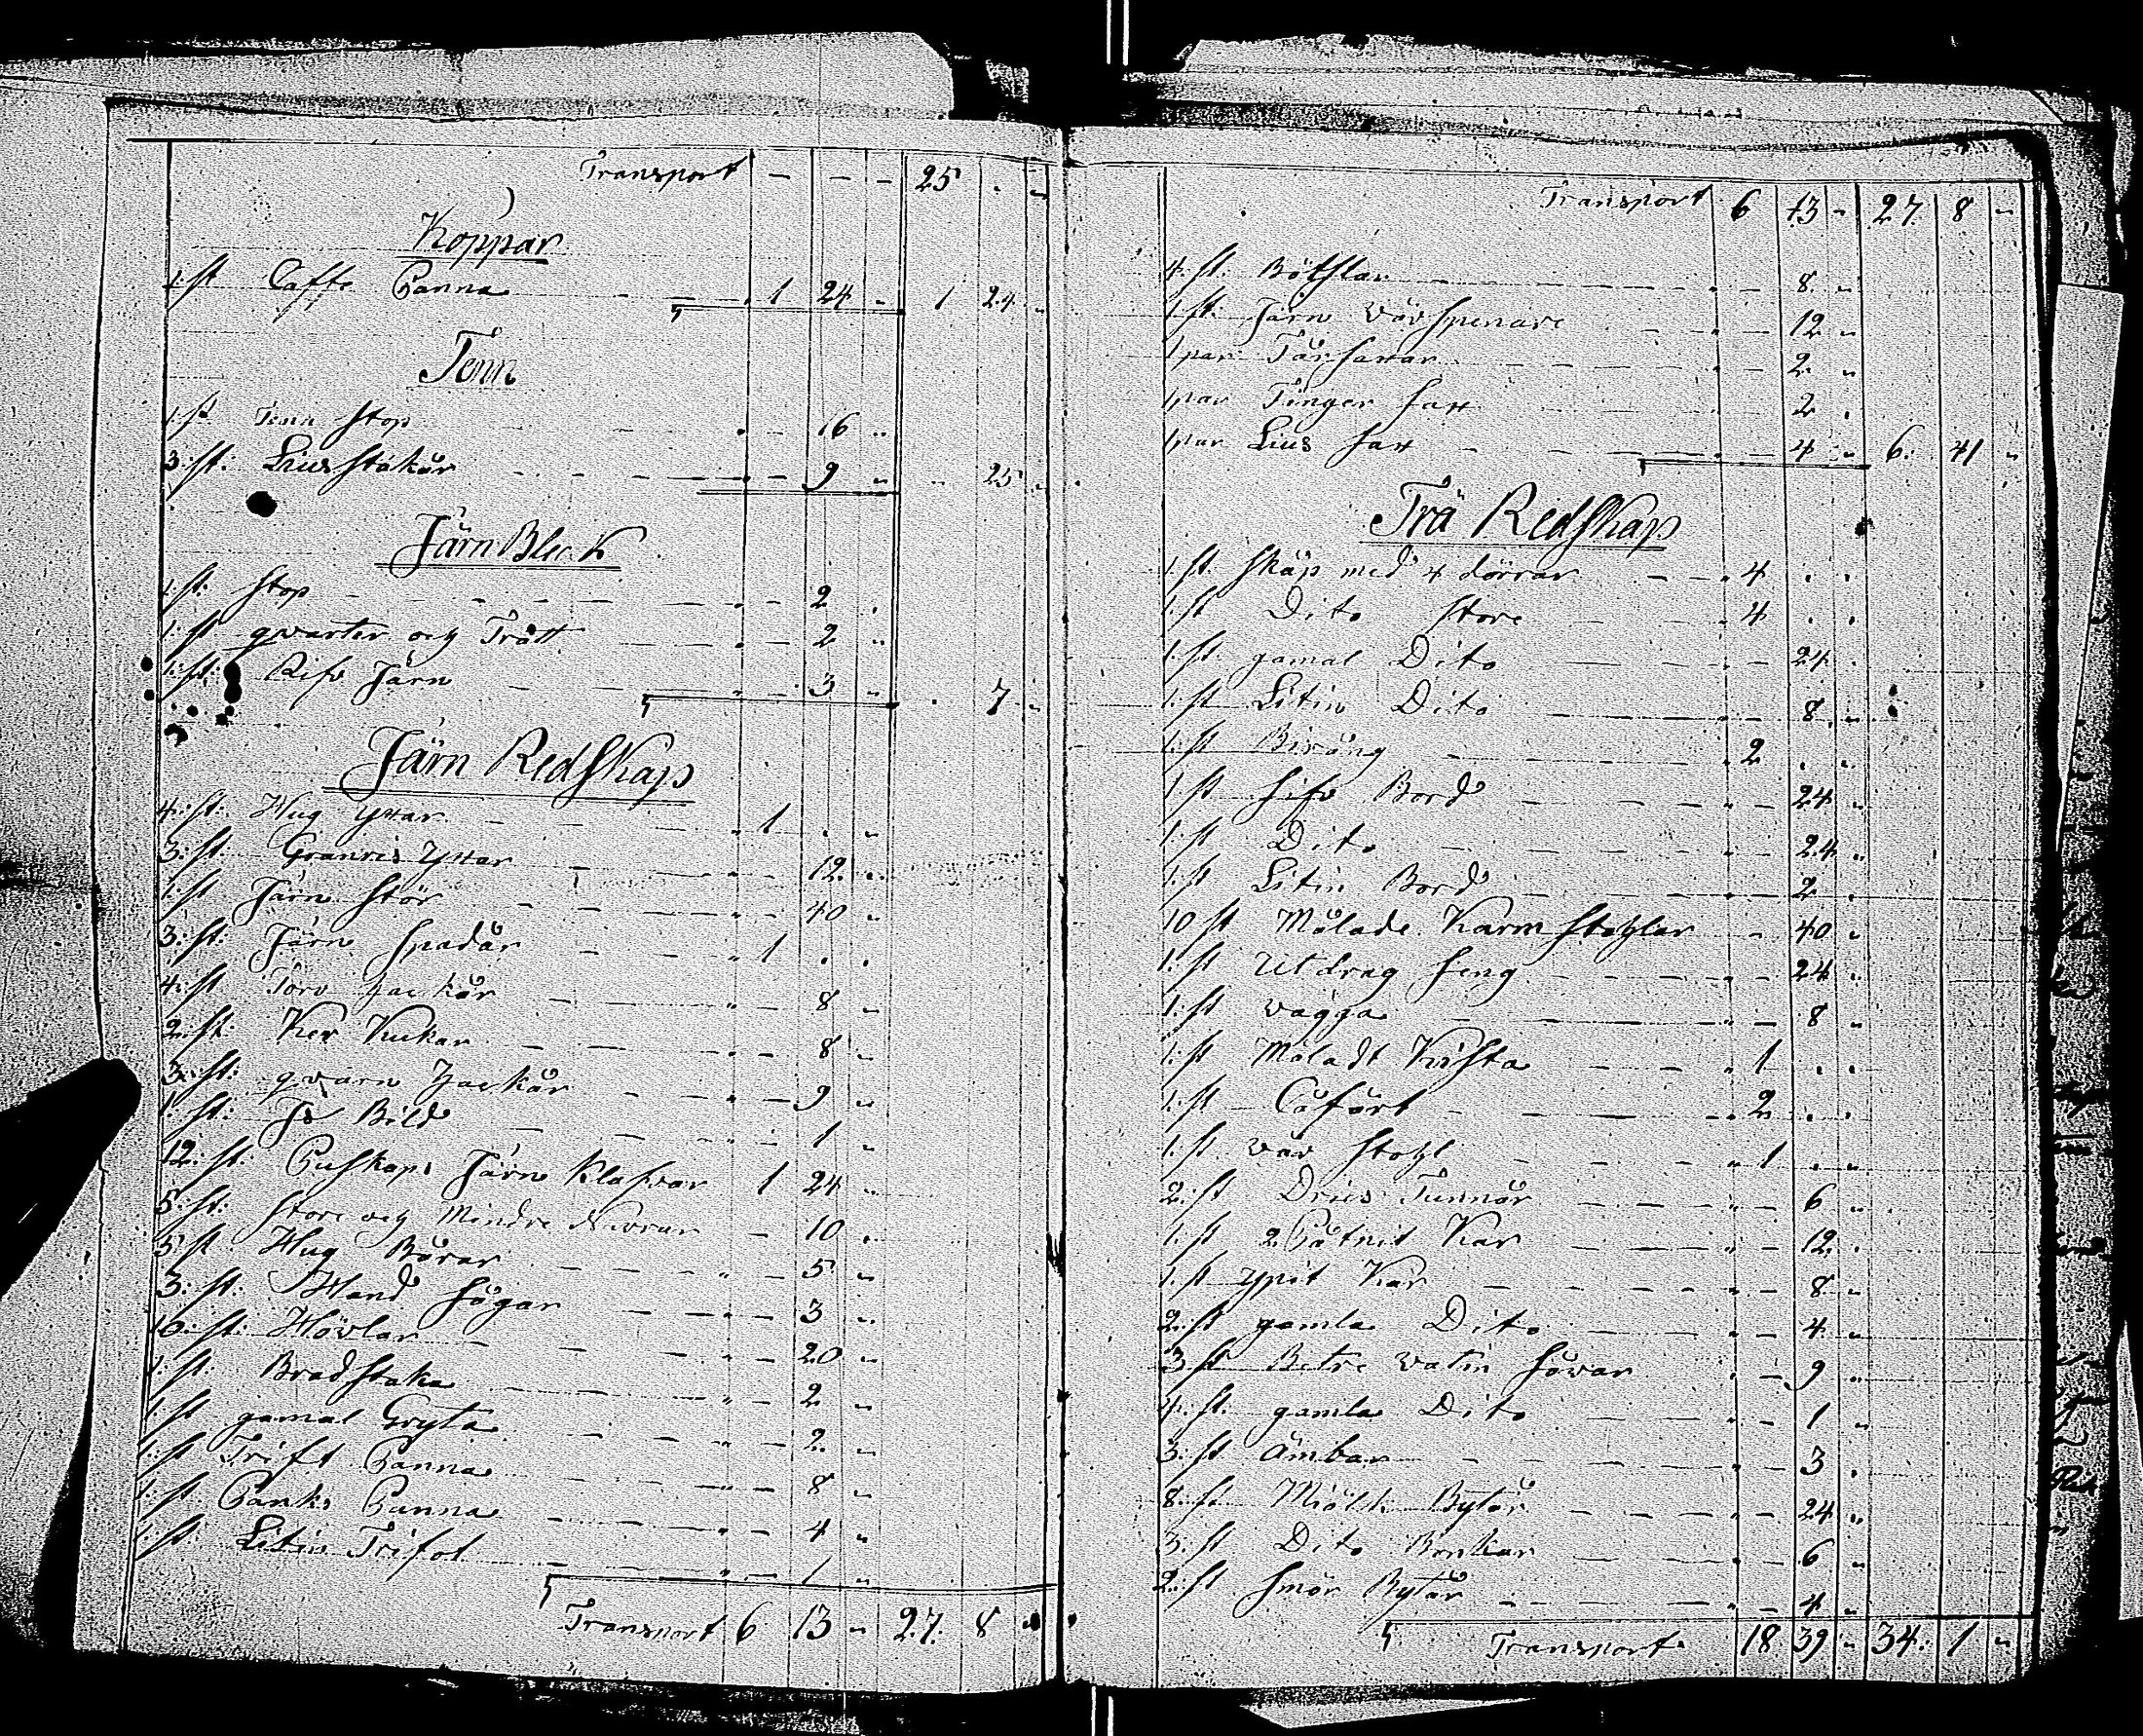 Transport - - - 25 . -
Koppar
1: st Caffe Panna - - 1 24 - 1 24 -
Tenn
1: st Tenn stop - - 16 -
3: st: Lius stakår - - 9 - - 25 -
Järn Bleck
1: st: stop - - 2 .
1: st qvarter och Trått - - 2 -
1: st: Rifv Järn - - 3 - . 7 -
Järn Redskap
4: st: Hug Yxar - 1 . -
3: st: Granris Yxar - - 12 -
1: st Järn Stör - - 40 -
3: st: Järn Spadår - 1 . .
4: st Torv hackår - - 8 -
2: st: Ker Kukar - - 8 -
3: st: qvarn hackår - - 9 -
1: st: Is Bild - - 1 -
12: st: Buskaps Järn Klafvar 1 24 -
5: st: store och Mindre Navrar - 10 .
5 st Hug Bårar - - 5 -
3: st: Hand Sågar - - 3 -
10: st: Hövlar - - 20 -
1: st: Brad staka - - 2 -
1: st gamal Gryta - - 2. -
1: st Trift Panna - - 8 -
1: st: Pank Panna - - 4 -
1: st: Litin Trifot - - 1 -
Transport 6 13 - 27. 8 -
Transport 6 13 - 27. 8 -
4: st: Bötslar - - 8 -
1 st: Järn vävspenare - - 12 -
1 par Fårsaxar - - 2 -
1 par Finger sax - - 2 .
1 par Lius sax - - 4 - 6: 41 -
Trä Redskap
1: st. skåp med 4 dörrar - 4 . .
1: st Dito store - 4 . .
1: st: gamal Dito - - 24 .
1: st Litin Dito - - 8 -
1: st Biräng - 2 . .
1 st sifv Bord - - 24 -
1: st Dito - - 24 -
1: st Litin Bord - - 2 .
10 st Målade Karm stohlar - 40 .
1: st Utdrag seng - - 24 .
1: st vagga - - 8 -
1: st Måladt Kista - 1 . .
1: st Cofört - 2 . .
1: st väv stohl - 1 . -
2: st Drics Tunnår - - 6 -
1: st 2 Båtnit Kar - - 12 .
1: st ypit Kar - - 8 -
2: st gamla Dito - - 4 -
3 st Betre vatin Såvar - - 9 -
4: st: gamla Dito - - 1 -
3: st Ämbar - - 3 .
8: st Miölk Bytår - - 24 -
3: st Dito Bonkar - - 6 -
2: st Smör Bytår - - 4 -
Transport 18 39 - 34. 1 -